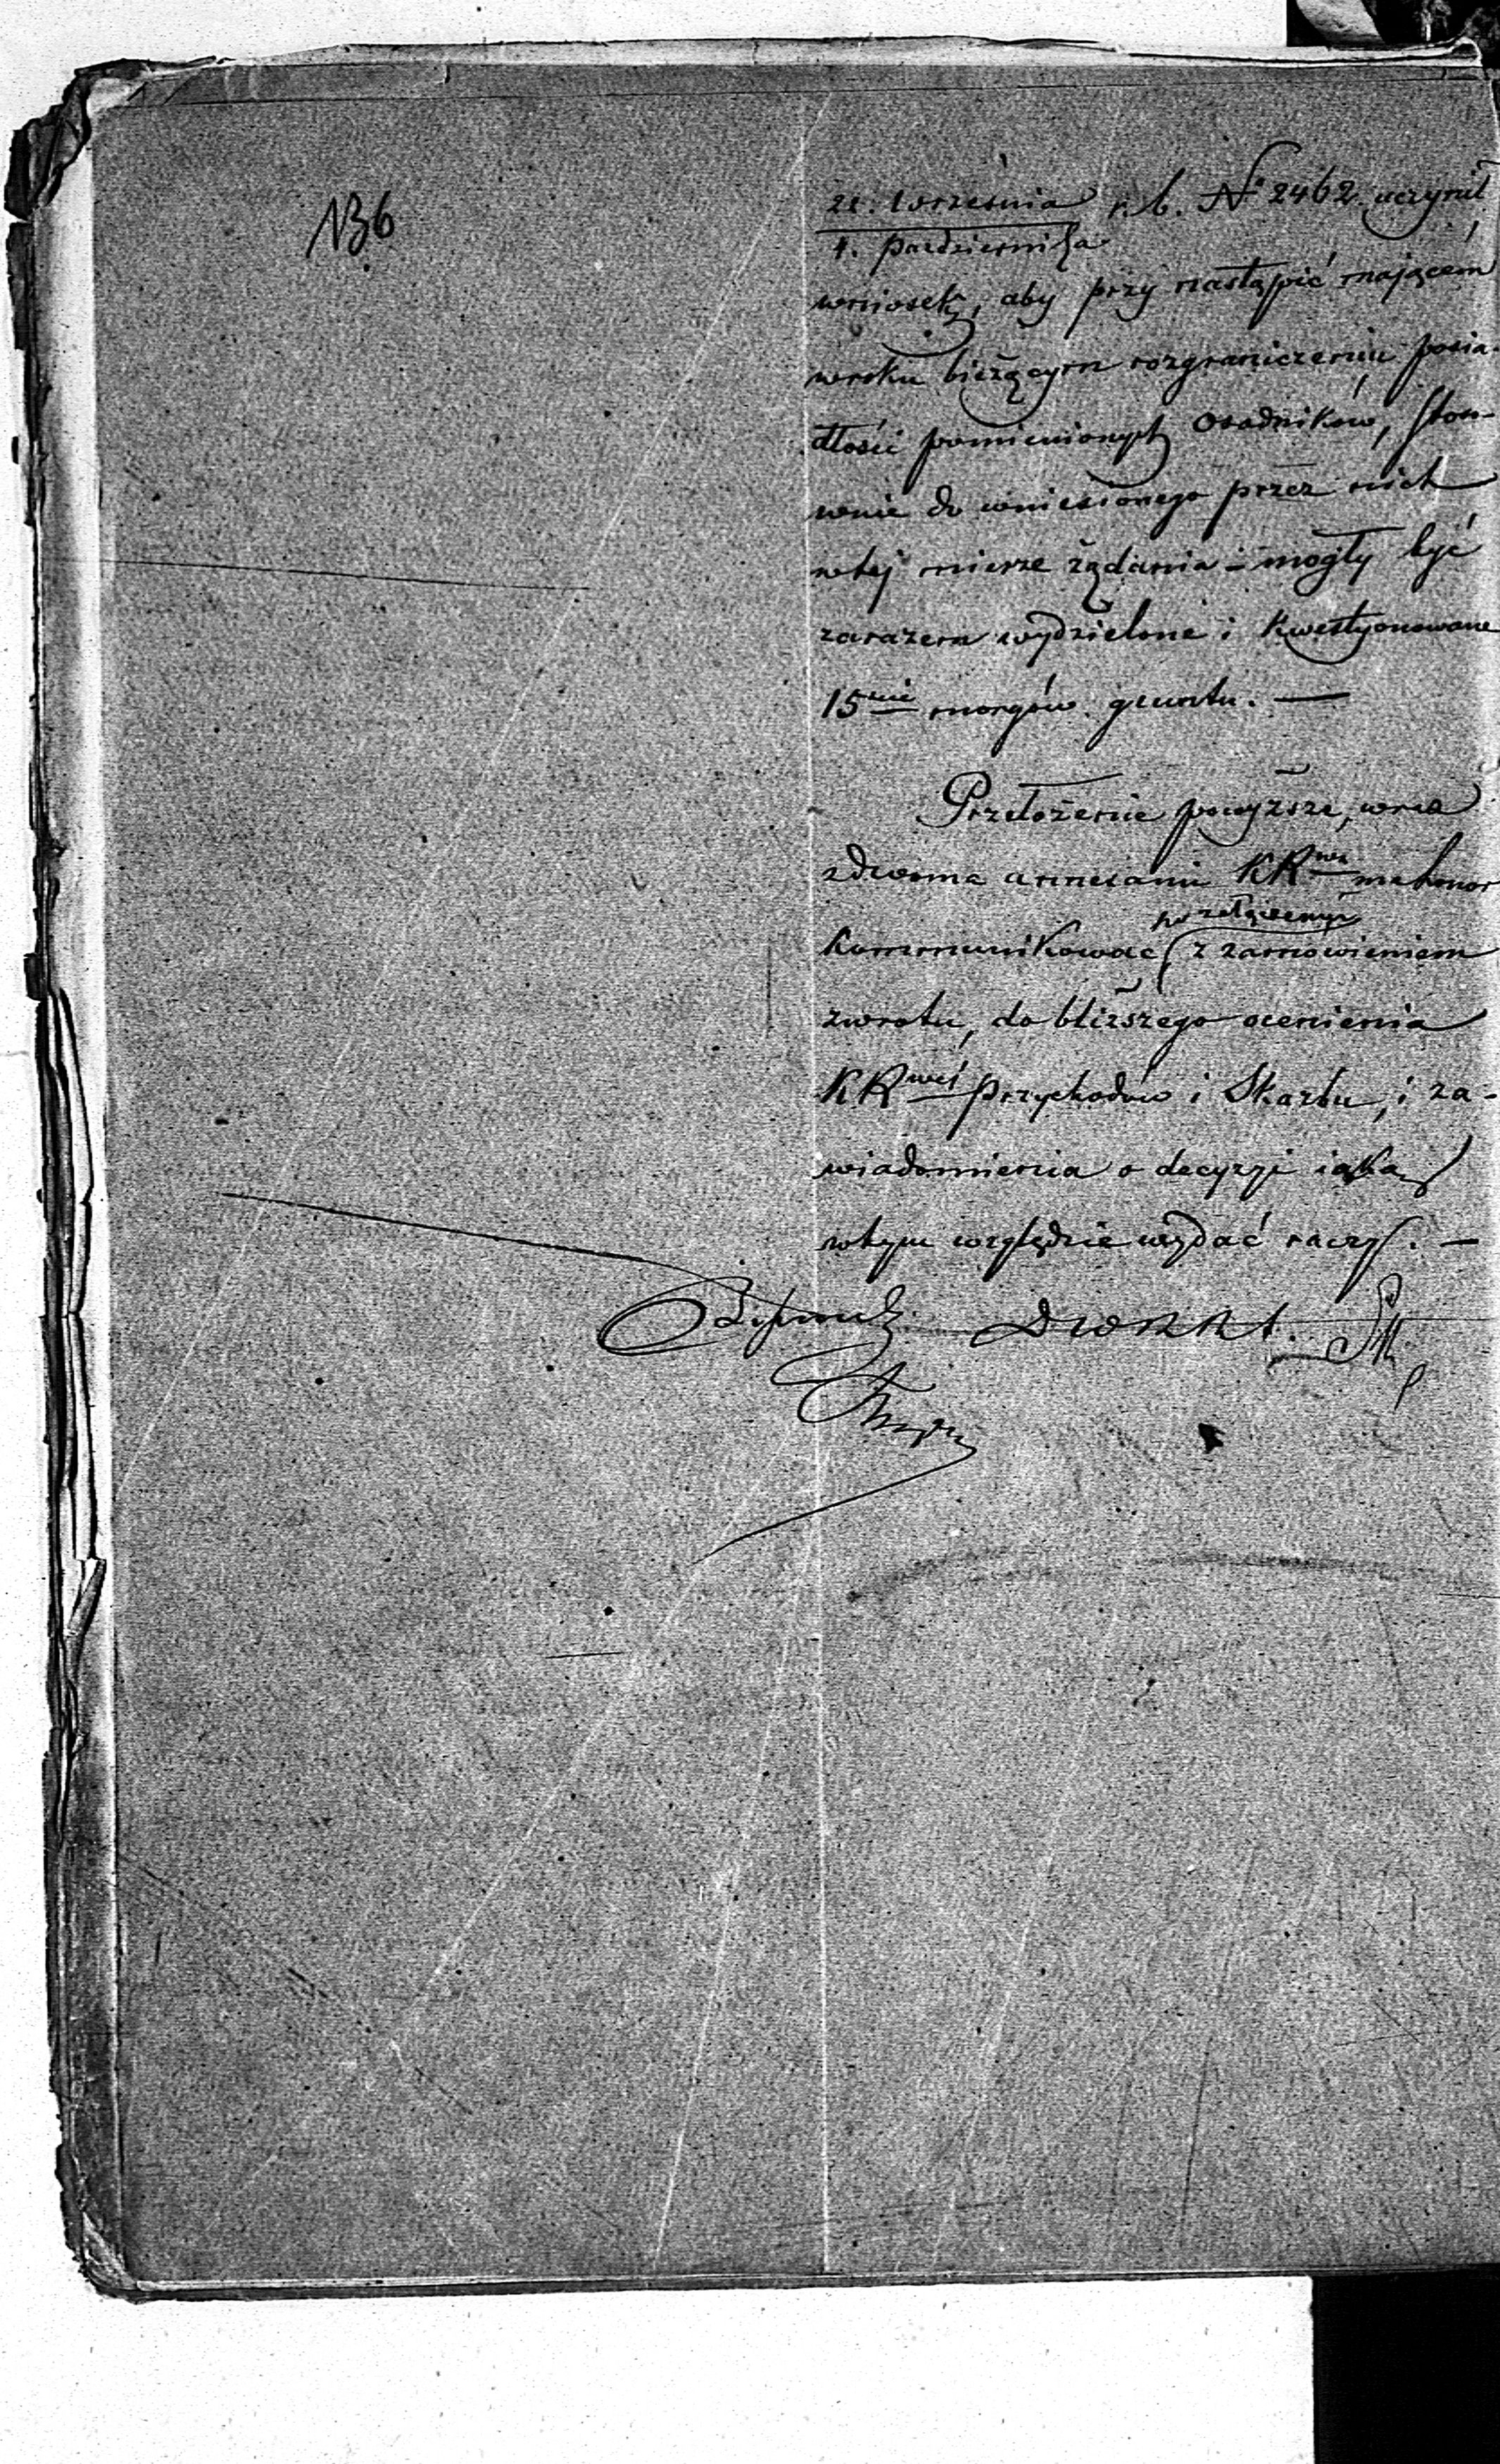 136
21. Września r. b. N° 2462 uczynił
4. Października
wniosek, aby przy nastąpić mającem
wroku bieżącym rozgraniczeniu posia-
dłości pomienionych Osadników, stoso-
wnie do wniesionego przez nich
wtej mierze żądania – mogły być
zarazem wydzielone i kwestyonowane
15cie morgów gruntu. —
Przełożenie powyższe, wraz
zdwoma annexami KRwa ma honor
po załączeniu
kommunikować, z zamówieniem
zwrotu, do bliższego ocenienia
KRwej Przychodów i Skarbu, i za-
wiadomienia o decyzyi iaką
wtym względzie wydać raczy. —